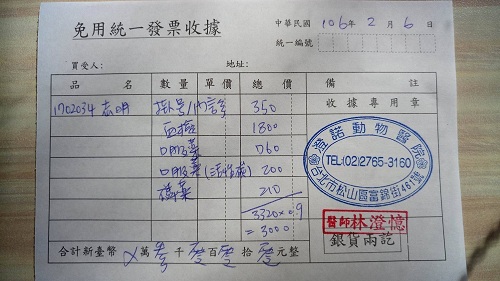 免用統一發票收據
中華民國 106年 2 月 6 日
統一編號
買受人： 地址：
品 名 數量 單價 總價 備註
1702034 志明 掛号/內診 350 收據專用章
血檢 1800
口服藥 760
口服藥 200
擦藥 210
3320×0.9
=3000
澄諾動物醫院
TEL(02)2765-3160
台北市松山區富錦街461號
醫師林澄憶
銀貨兩訖
合計新臺幣 萬 参 千 零 百 零 拾 零 元整